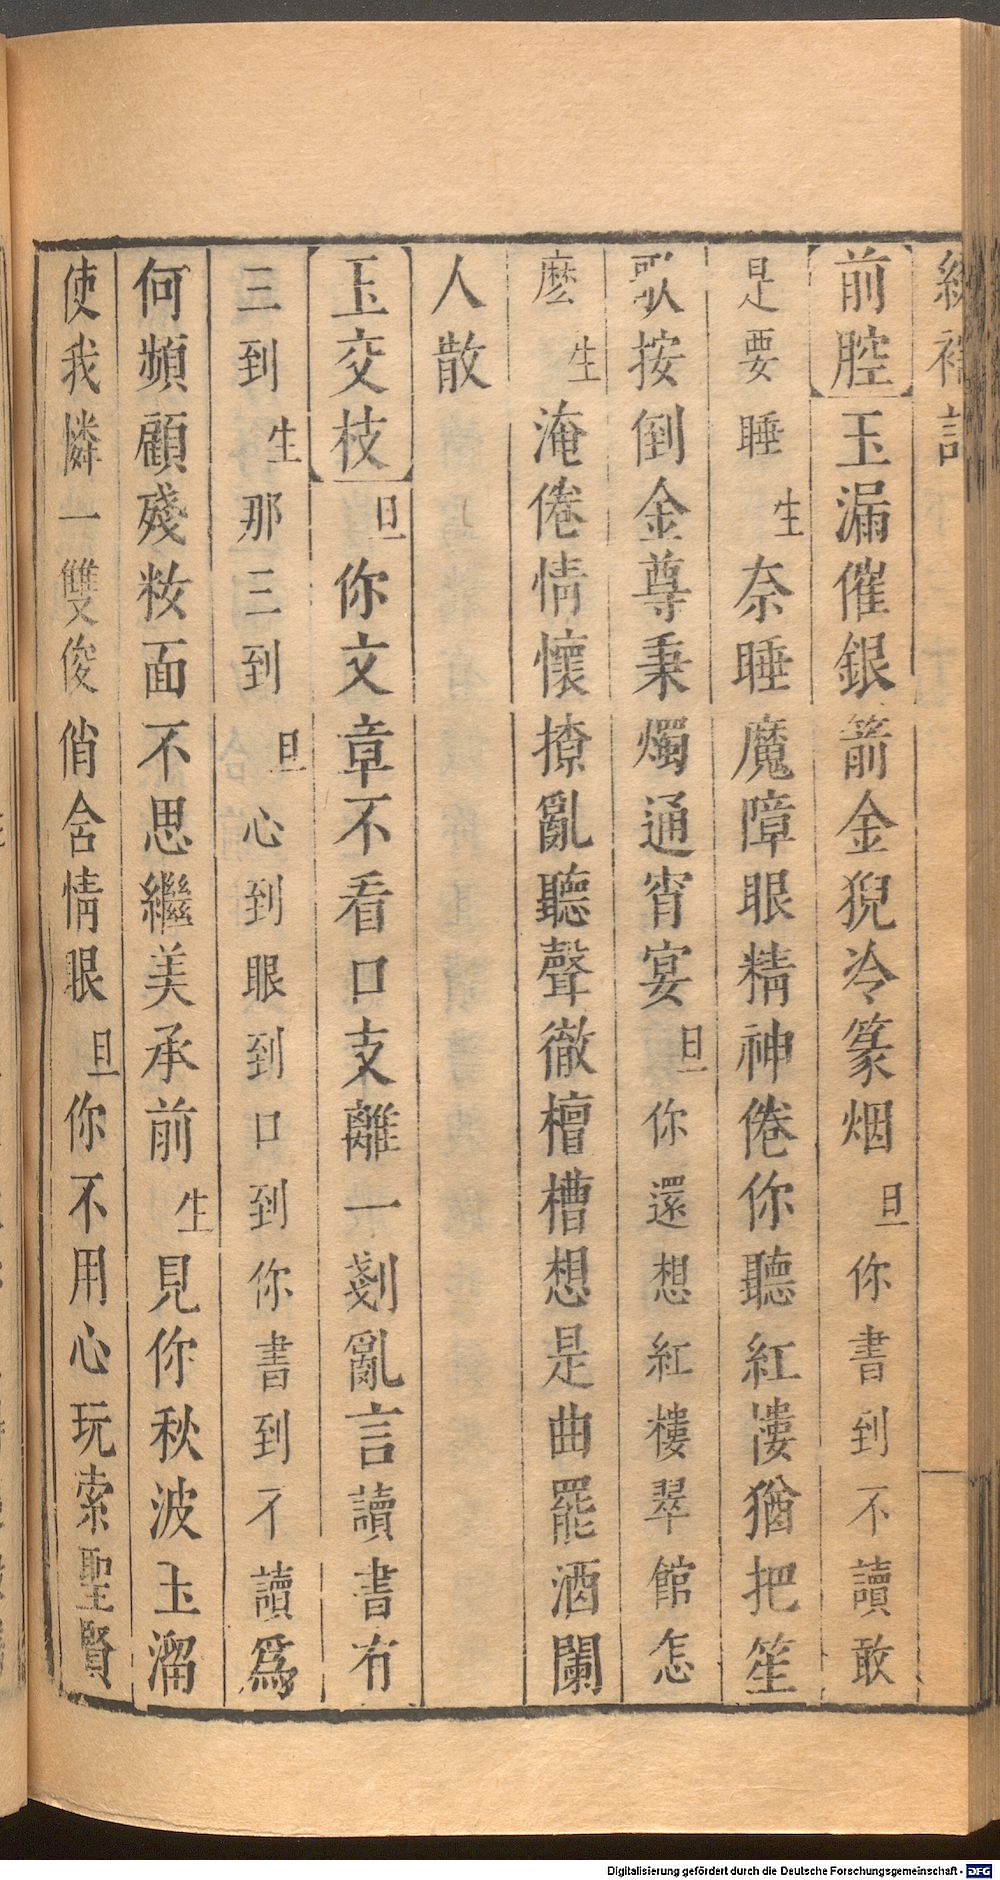 繡襦記
【前腔】玉漏催銀箭金猊冷篆烟旦你書到不讀敢
是要睡生奈睡魔障眼精神倦你聽紅漊猶把笙
歌按倒金尊秉燭通宵宴旦你還想紅樓翠館怎
麽生淹倦情懷撩亂聽聲徹檀槽想是曲罷酒闌
人散
【玉交枝】旦你文章不看口支離一剗亂言讀書有
三到生那三到旦心到眼到口到你書到不讀爲
何頻顧殘籹面不思繼美承前生見你秋波玉溜
使我憐一雙俊俏含情眼旦你不用心玩索聖賢
Digitalisierung gefördert durch die Deutsche Forschungsgemeinschaft - DFG